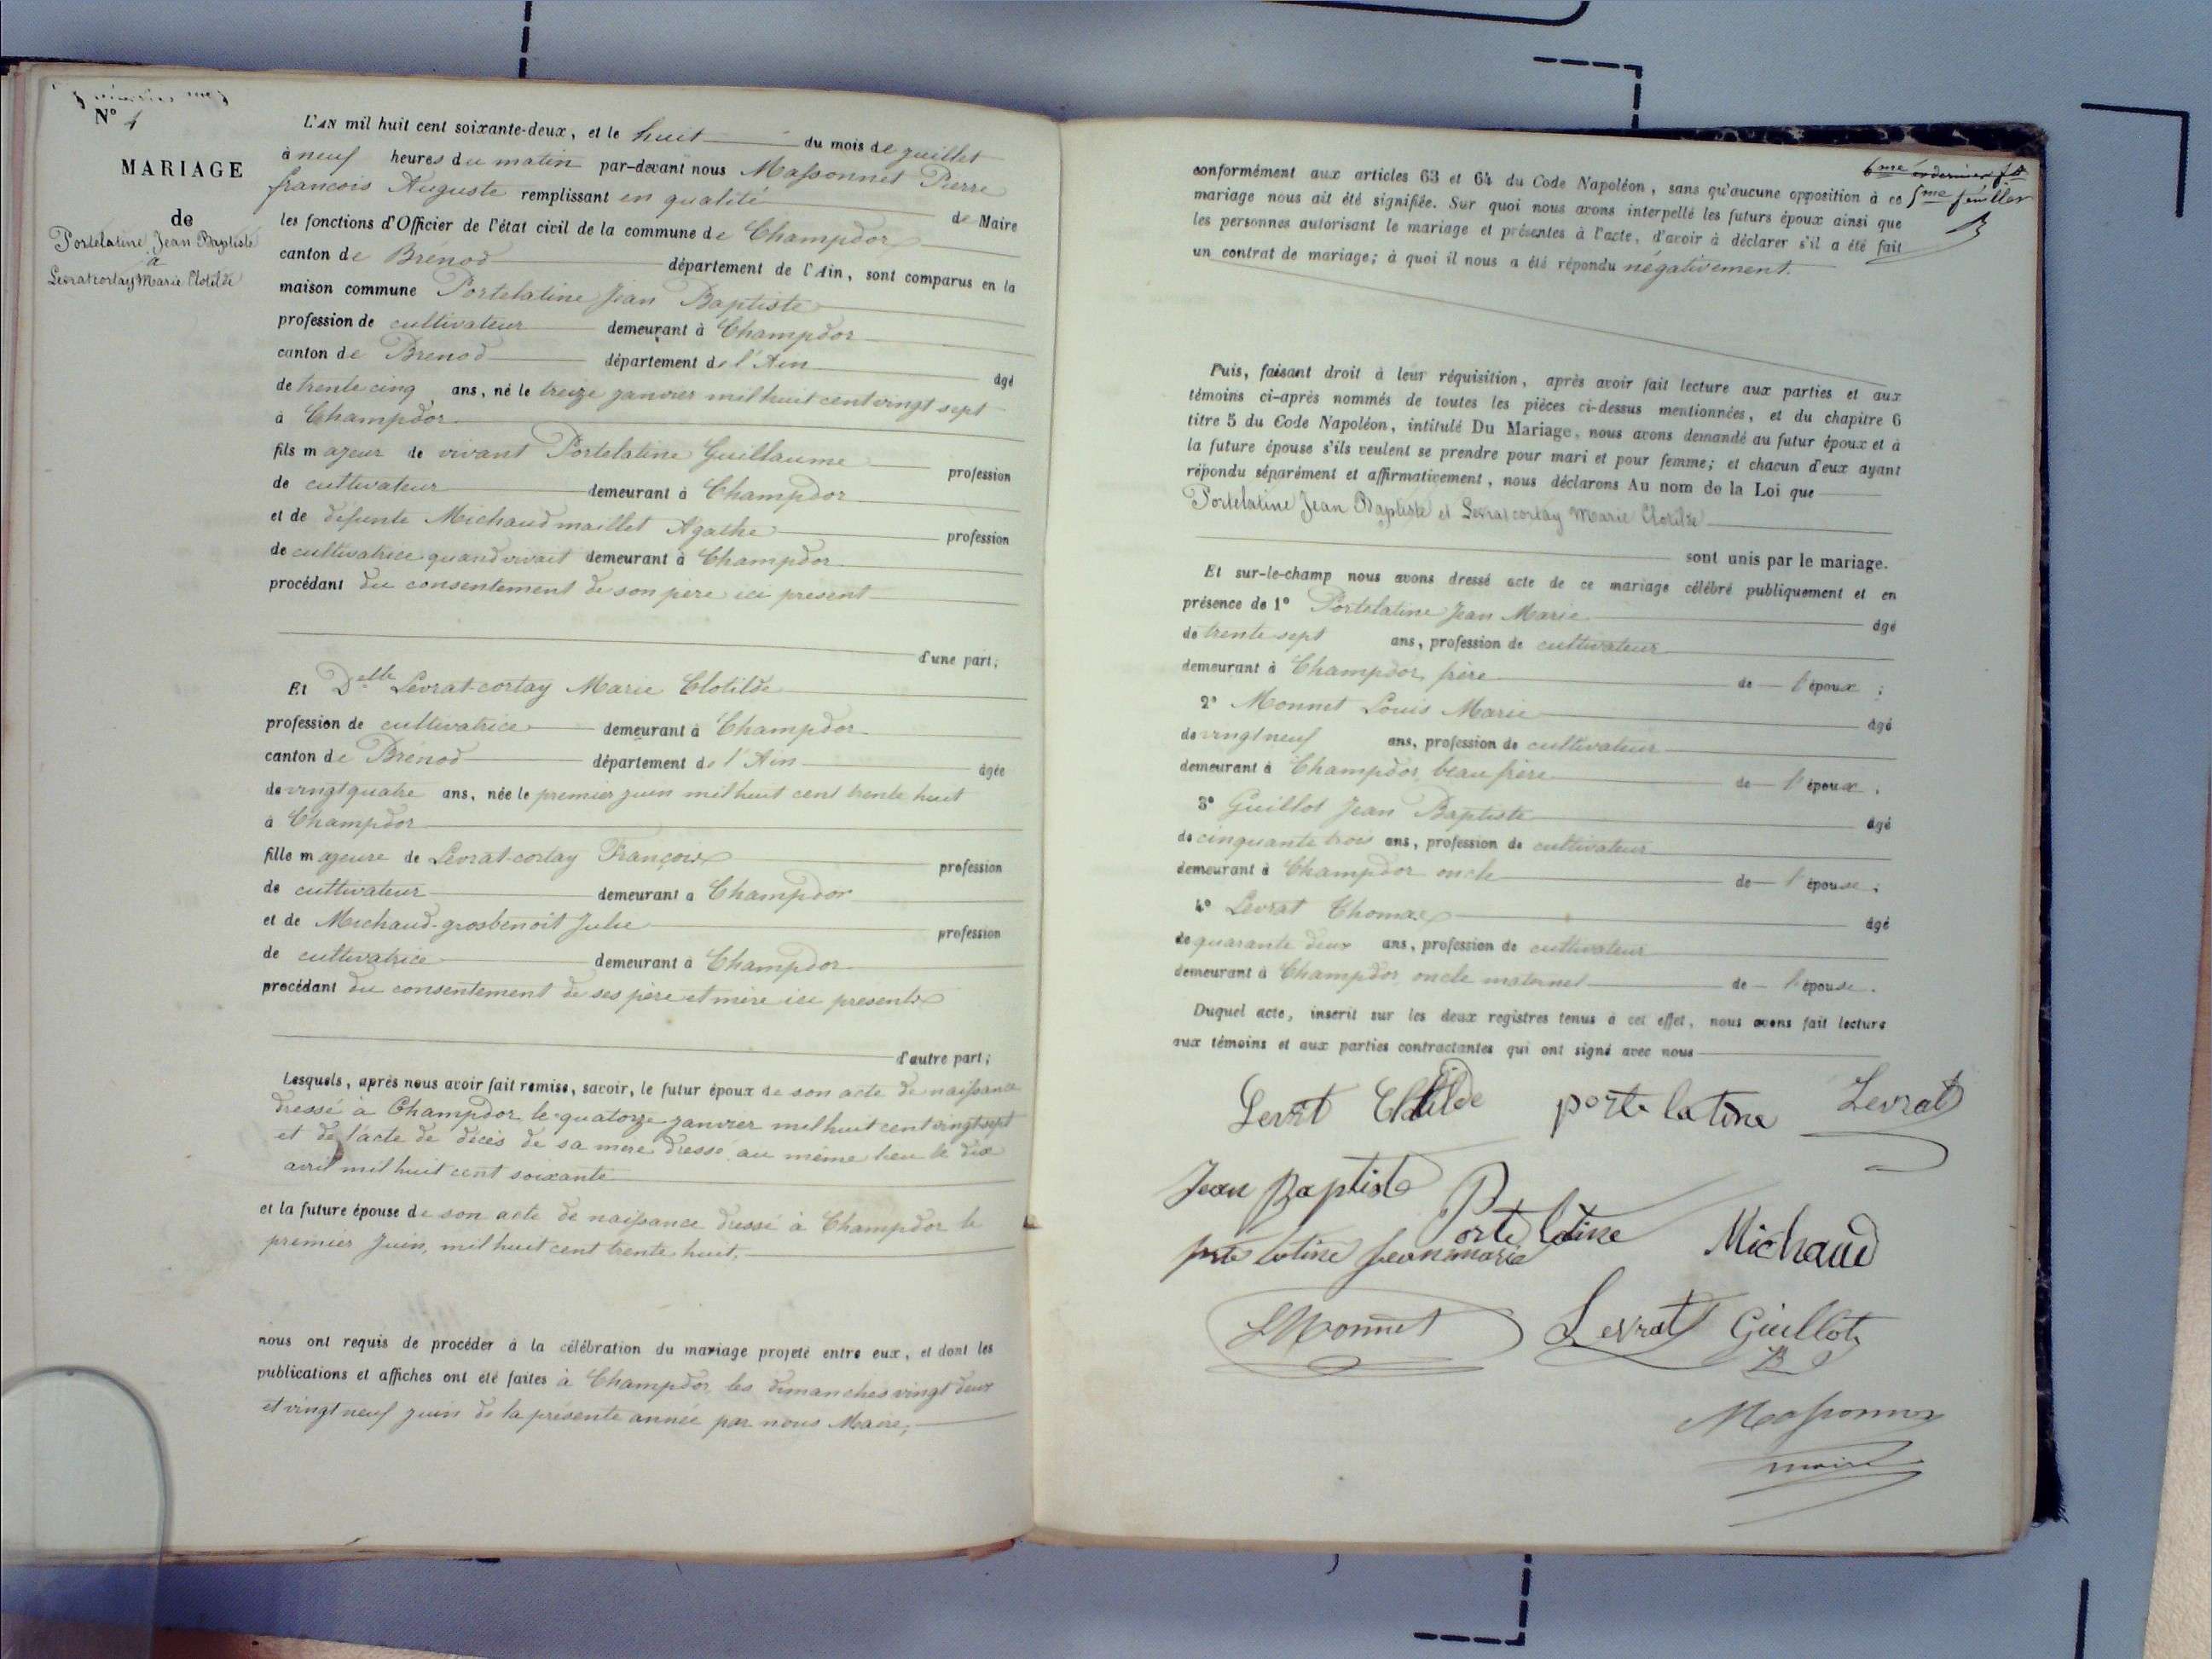 N° 4
MARIAGE
de
Portelatine Jean Baptiste
à
Levrat cortay Marie Clotilde
L'AN mil huit cent soixante-deux, et le huit du mois de juillet
à neuf heures du matin par-devant nous Massonnet Pierre
francois Auguste remplissant en qualité de Maire
les fonctions d'Officier de l'état civil de la commune de Champdor
canton de Brénod département de l'Ain, sont comparus en la
maison commune Portelatine Jean Baptiste
profession de cultivateur demeurant à Champdor
canton de Brenod département de l'Ain âgé
de trente cinq ans, né le treize janvier mil huit cent vingt sept
à Champdor
fils majeur de vivant Portelatine Guillaume profession
de cultivateur demeurant à Champdor
et de defunte Michaud maillet Agathe profession
de cultivatrice quand vivait demeurant à Champdor
procédant du consentement de son père ici present
d'une part;
Et Delle Levrat-cortay Marie Clotilde
profession de cultivatrice demeurant à Champdor
canton de Brénod département de l'Ain âgée
de vingt quatre ans, née le premier juin mil huit cent trente huit
à Champdor
fille majeure de Levrat-cortay François profession
de cultivateur demeurant a Champdor
et de Michaud-grosbenoit Julie profession
de cultivatrice demeurant à Champdor
procédant du consentement de ses père et mère ici presents
d'autre part;
Lesquels, après nous avoir fait remise, savoir, le futur époux de son acte de naissance
dressé à Champdor le quatorze janvier mil huit cent vingt sept
et de l'acte de décès de sa mère dressé au même lieu le dix
avril mil huit cent soixante
et la future épouse de son acte de naissance dressé à Champdor le
premier Juin, mil huit cent trente huit,
nous ont requis de procéder à la célébration du mariage projeté entre eux, et dont les
publications et affiches ont été faites à Champdor les dimanches vingt deux
et vingt neuf juin de la présente année par nous Maire;
5me feuillet
conformément aux articles 63 et 64 du Code Napoléon, sans qu'aucune opposition à ce
mariage nous ait été signifiée. Sur quoi nous avons interpellé les futurs époux ainsi que
les personnes autorisant le mariage et présentes à l'acte, d'avoir à déclarer s'il a été fait
un contrat de mariage; à quoi il nous a été répondu négativement.
Puis, faisant droit à leur réquisition, après avoir fait lecture aux parties et aux
témoins ci-après nommés de toutes les pièces ci-dessus mentionnées, et du chapitre 6
titre 5 du Code Napoléon, intitulé Du Mariage, nous avons demandé au futur époux et à
la future épouse s'ils veulent se prendre pour mari et pour femme; et chacun d'eux ayant
répondu séparément et affirmativement, nous déclarons Au nom de la Loi que
Portelatine Jean Baptiste et Levrat cortay Marie Clotilde
sont unis par le mariage.
Et sur-le-champ nous avons dressé acte de ce mariage célébré publiquement et en
présence de 1° Portelatine Jean Marie âgé
de trente sept ans, profession de cultivateur
demeurant à Champdor, frère de l'époux ;
2° Monnet Louis Marie âgé
de vingt neuf ans, profession de cultivateur
demeurant à Champdor, beau frère de l'époux ;
3° Guillot Jean Baptiste âgé
de cinquante trois ans, profession de cultivateur
demeurant à Champdor oncle de l'épouse ;
4° Levrat Thomas âgé
de quarante deux ans, profession de cultivateur
demeurant à Champdor, oncle maternel de l'épouse.
Duquel acte, inscrit sur les deux registres tenus à cet effet, nous avons fait lecture
aux témoins et aux parties contractantes qui ont signé avec nous
Levrat Clotilde porte latine Levrat
Jean Baptiste Porte latine
porte latine jean marie Michaud
L Monnet Levrat Guillot
JB
Massonnet
maire